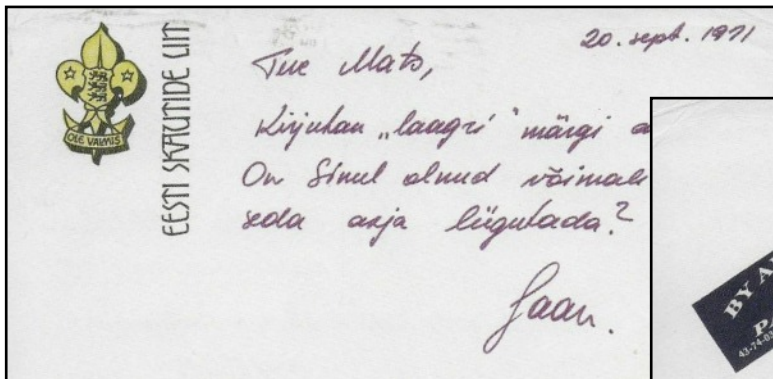 OLE VALMIS
EESTI SKAUTIDE LIIT
20. sept. 1971
Tere Mats,
Kirjutan „laagri" märgi a
On Sinul olnud võimalu
seda asja liigutada?
Jaan.
BY AI
PA
43-74-03